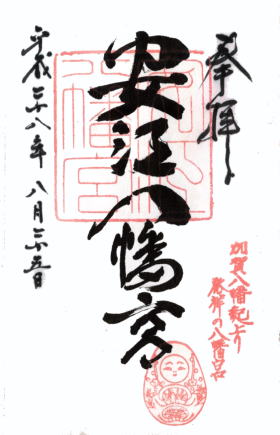 奉拝
安江八幡宮
平成二十八年八月二十五日
加賀八幡起上り
発祥の八幡宮